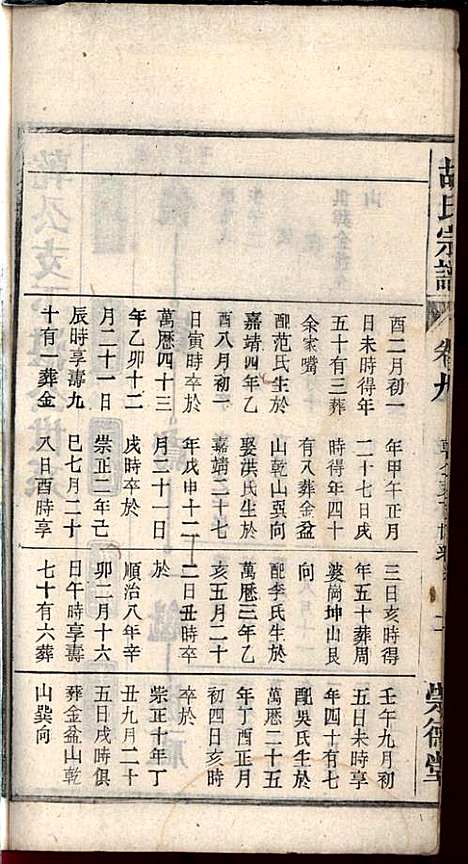 胡氏宗譜
卷九
崇德堂
酉二月初一
日未時得年
五十有三葬
余家嘴
配范氏生於
嘉靖四年乙
酉八月初一
日寅時卒於
萬曆四十三
年乙卯十二
月二十一日
辰時享壽九
十有一葬金
年甲午正月
二十七日戌
時得年四十
有八葬金盆
山乾山巽向
娶洪氏生於
嘉靖二十七
年戊申十二
月二十一日
戌時卒於
崇正二年己
巳七月二十
八日酉時享
三日亥時得
年五十葬周
婆崗坤山艮
向
配李氏生於
萬曆三年乙
亥五月二十
二日丑時卒
於
順治八年辛
卯二月十六
日午時享壽
七十有六葬
壬午九月初
五日未時享
年四十有七
配吳氏生於
萬曆二十五
年丁酉正月
初四日亥時
卒於
崇正十年丁
丑九月二十
五日戌時俱
葬金盆山乾
山巽向